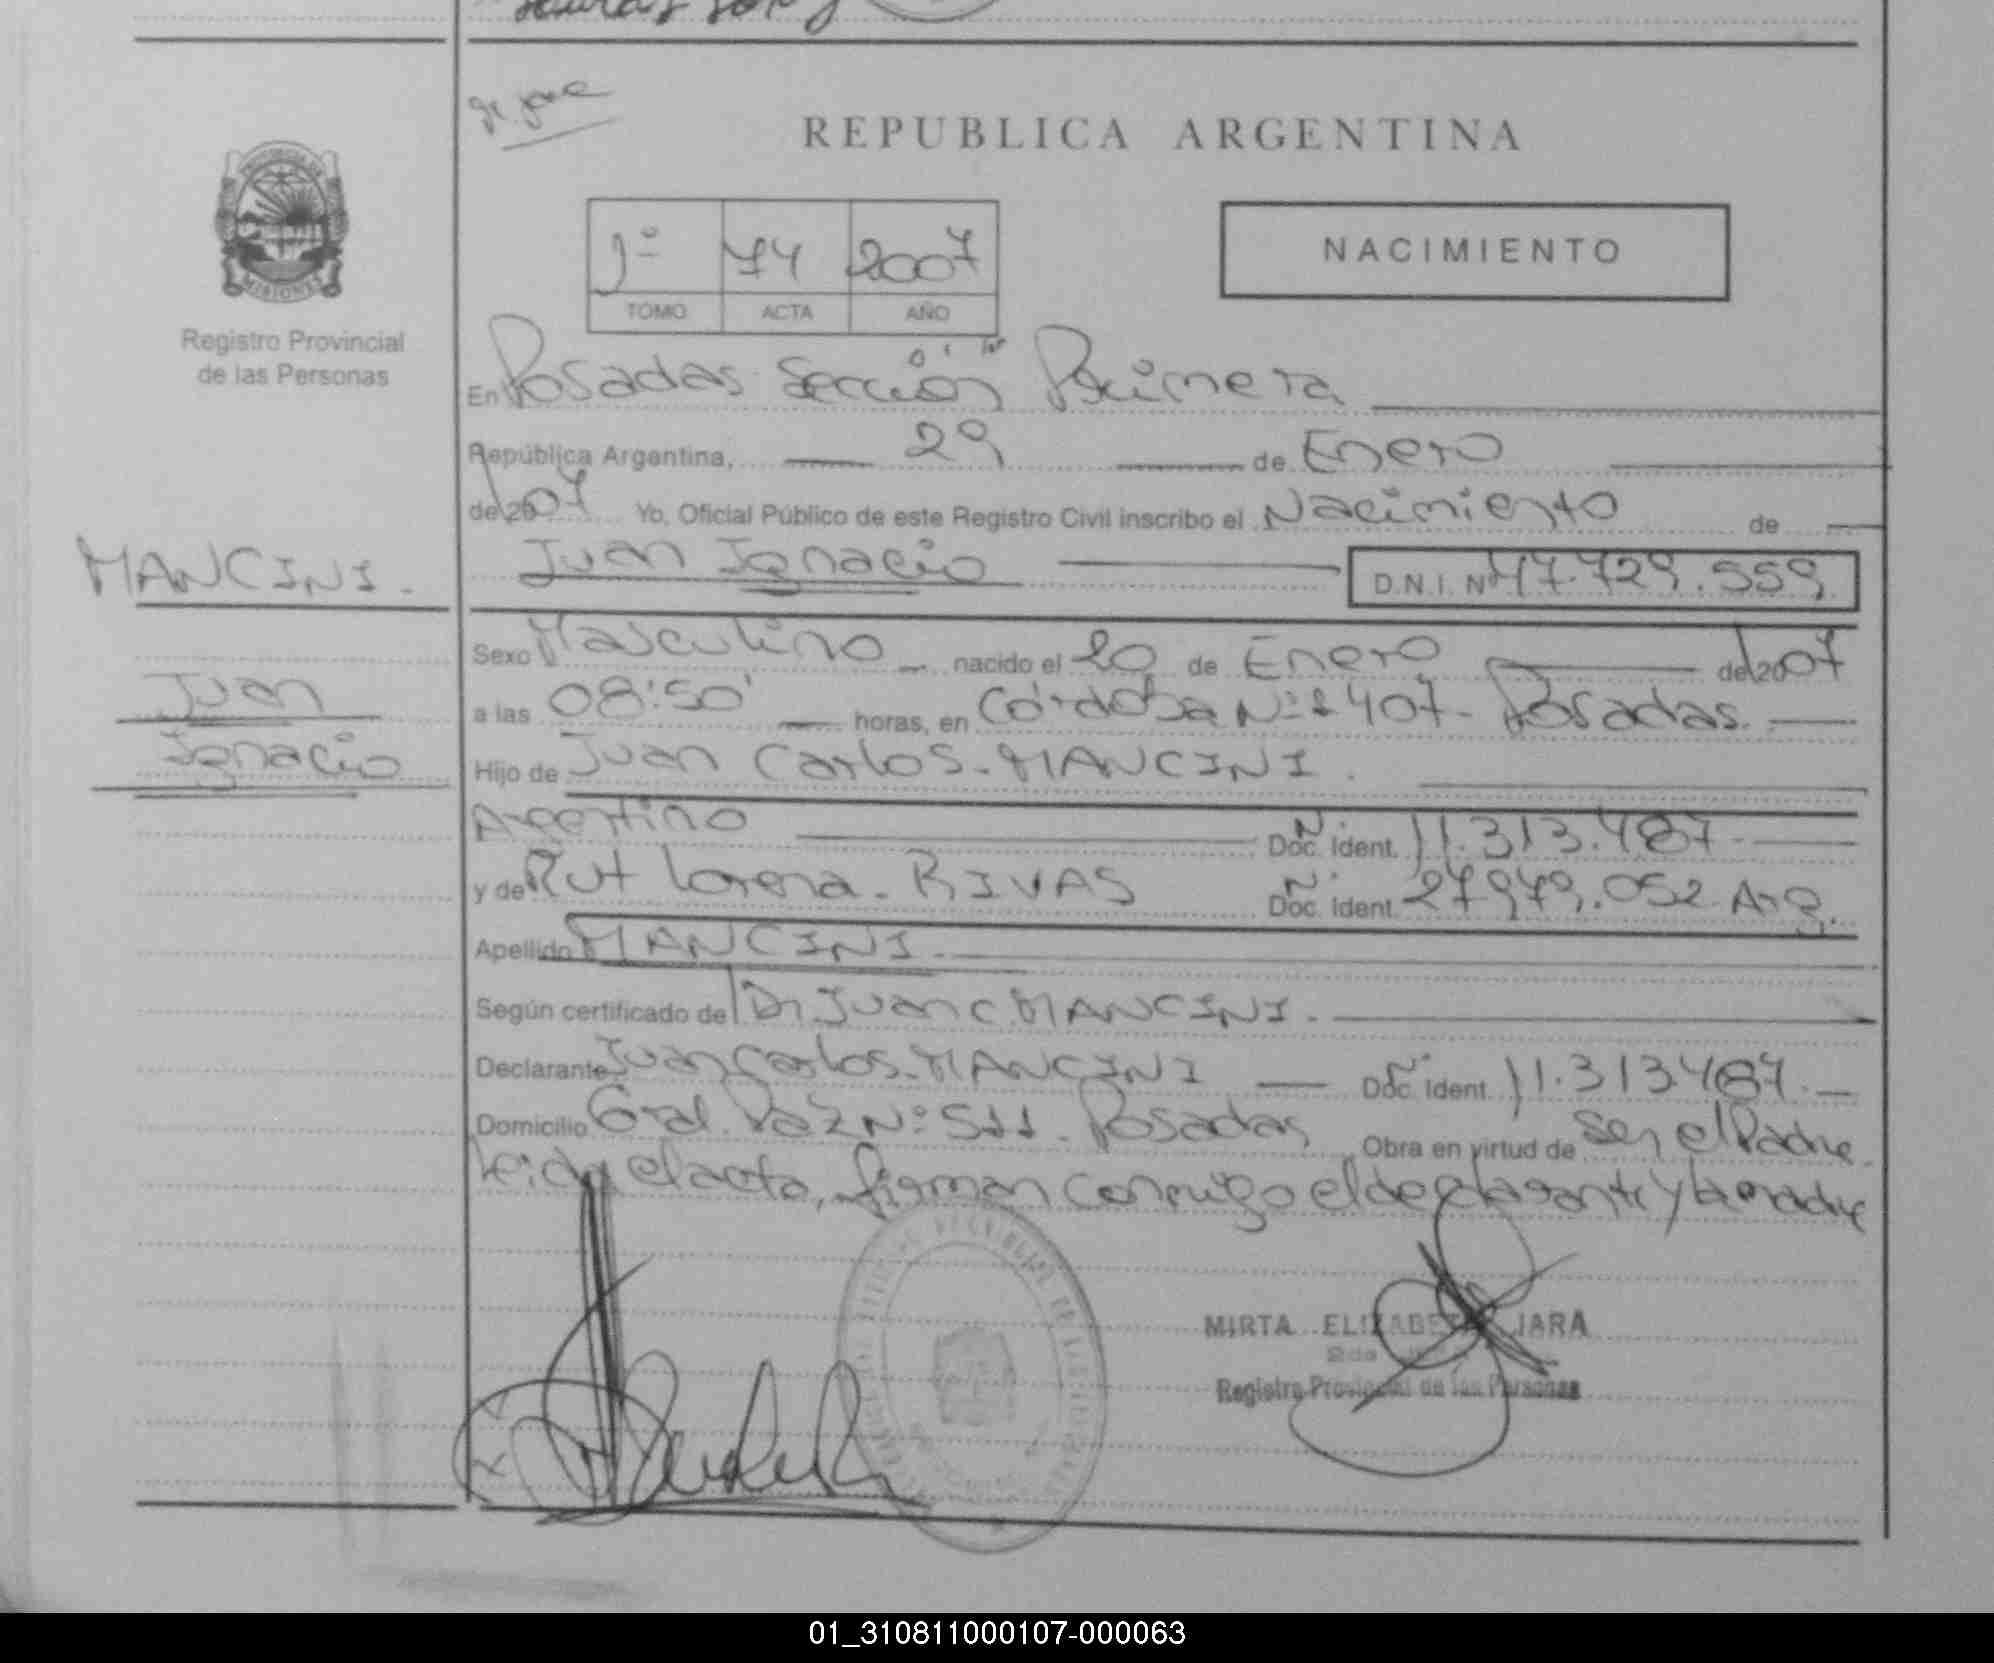 REPUBLICA ARGENTINA
PROVINCIA DE
MISIONES
Registro Provincial
de las Personas
1º 74 2007
TOMO ACTA AÑO
NACIMIENTO
En Posadas Sección Primera
República Argentina, 29 de Enero
de 2007 Yo, Oficial Público de este Registro Civil inscribo el Nacimiento de
MANCINI.
Juan Ignacio D.N.I. Nº 47.729.559
Sexo Masculino nacido el 20 de Enero de 2007
Juan
a las 08:50' horas, en Córdoba Nº 1407 - Posadas.
Ignacio
Hijo de Juan Carlos - MANCINI.
Argentino Nº Doc. Ident. 11.313.487
y de Rut Lorena - RIVAS Nº Doc. Ident. 27.979.052 Arg.
Apellido MANCINI.
Según certificado de Dr Juan C. MANCINI.
Declarante Juan Carlos - MANCINI Nº Doc. Ident. 11.313.487.
Domicilio Gral. Paz Nº 511 - Posadas Obra en virtud de Ser el Padre
leida el acta, firman conmigo el declarante y la madre
MIRTA ELIZABETH JARA
Registro Provincial de las Personas
01_310811000107-000063